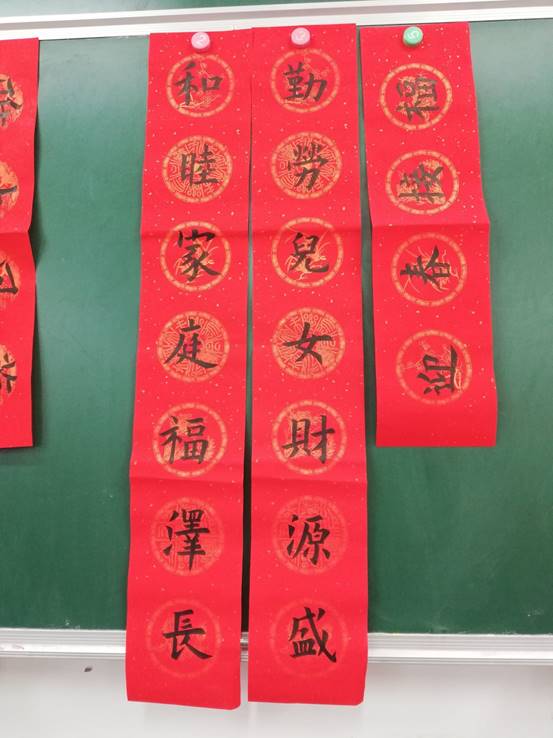 迎春接福
勤勞兒女財源盛
和睦家庭福澤長